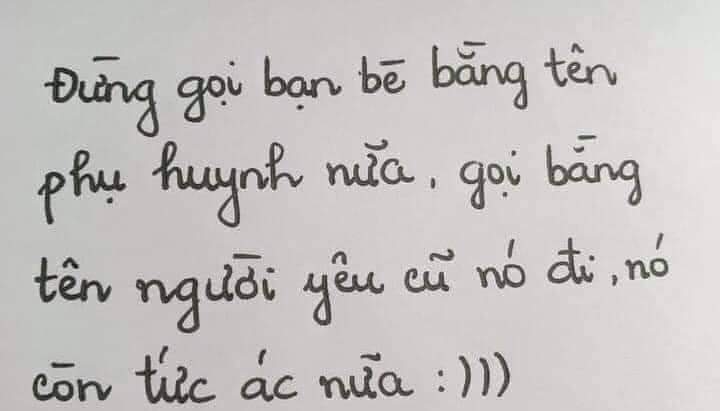 Đừng gọi bạn bè bằng tên
phụ huynh nữa, gọi bằng
tên người yêu cũ nó đi, nó
còn tức ác nữa :)))